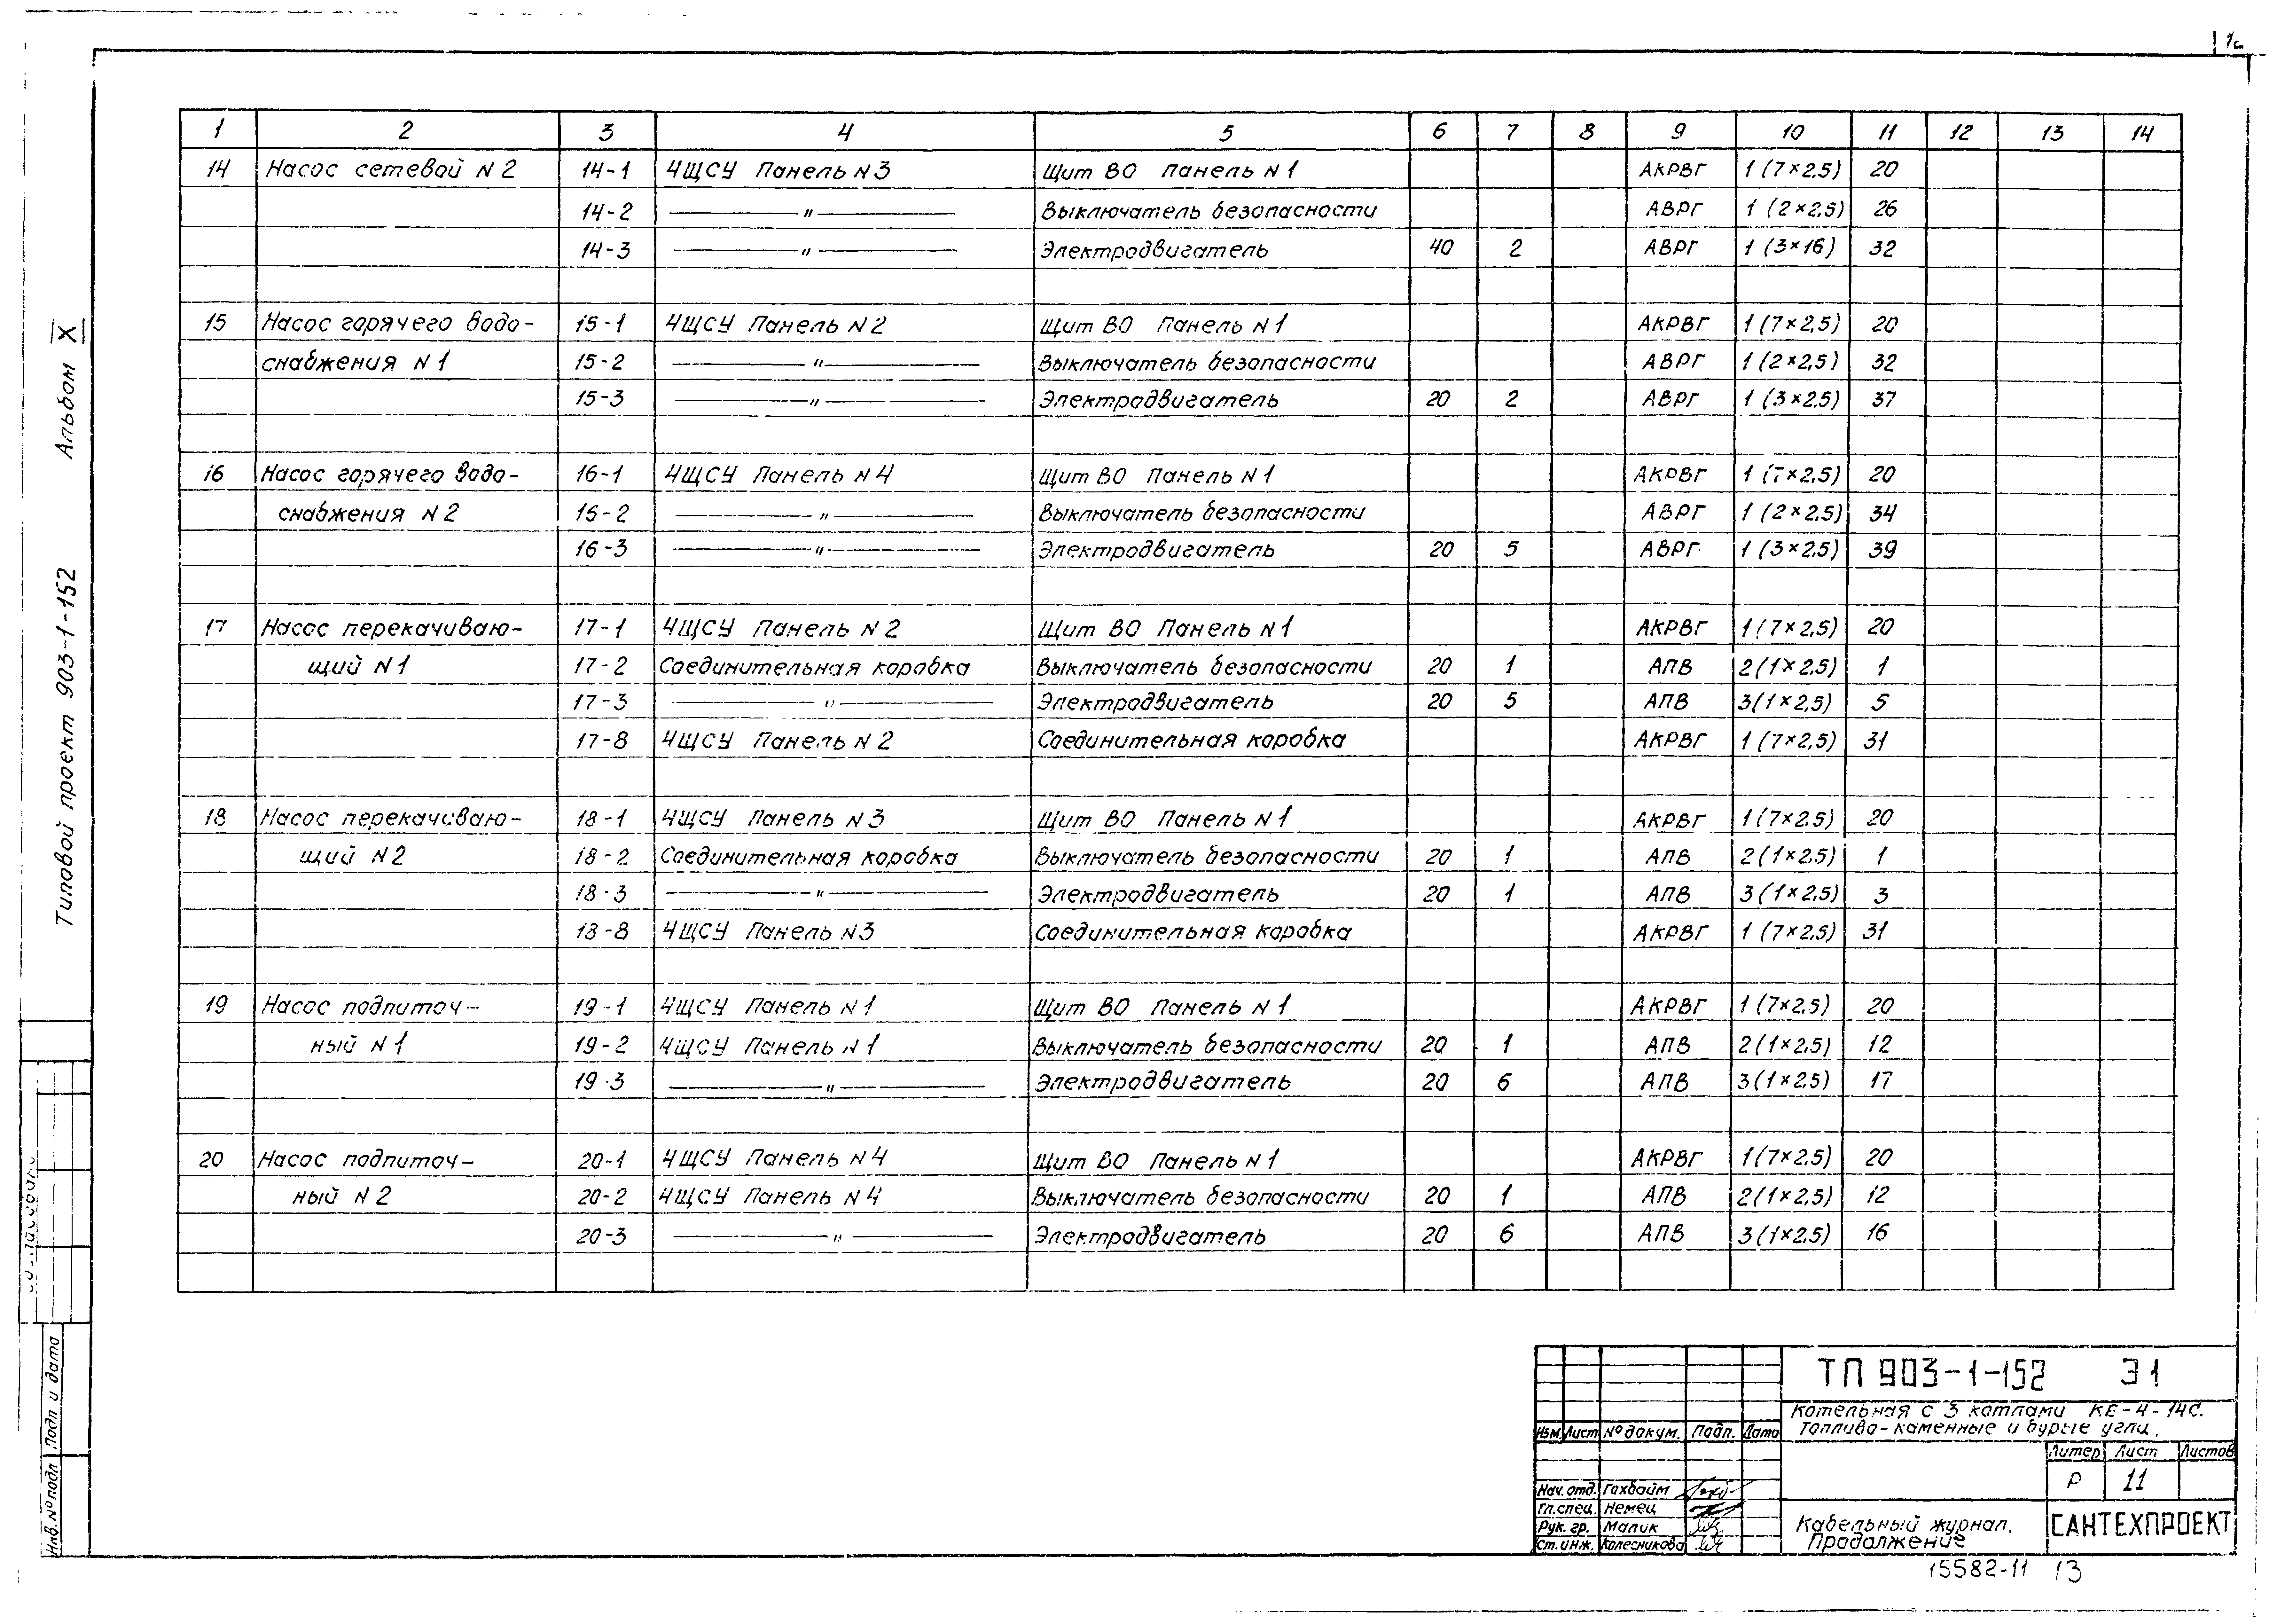 1 2 3 4 5 6 7 8 9 10 11 12 13 14
14 Насос сетевой N2 14-1 4ЩСУ Панель N3 Щит ВО панель N1 АКРВГ 1(7×2,5) 20
14-2 —"— Выключатель безопасности АВРГ 1(2×2,5) 26
14-3 —"— Электродвигатель 40 2 АВРГ 1(3×16) 32
15 Насос горячего водо- 15-1 4ЩСУ Панель N2 Щит ВО Панель N1 АКРВГ 1(7×2,5) 20
снабжения N1 15-2 —"— Выключатель безопасности АВРГ 1(2×2,5) 32
15-3 —"— Электродвигатель 20 2 АВРГ 1(3×2,5) 37
16 Насос горячего водо- 16-1 4ЩСУ Панель N4 Щит ВО Панель N1 АКРВГ 1(7×2,5) 20
снабжения N2 16-2 —"— Выключатель безопасности АВРГ 1(2×2,5) 34
16-3 —"— Электродвигатель 20 5 АВРГ 1(3×2,5) 39
17 Насос перекачиваю- 17-1 4ЩСУ Панель N2 Щит ВО Панель N1 АКРВГ 1(7×2,5) 20
щий N1 17-2 Соединительная коробка Выключатель безопасности 20 1 АПВ 2(1×2,5) 1
17-3 —"— Электродвигатель 20 5 АПВ 3(1×2,5) 5
17-8 4ЩСУ Панель N2 Соединительная коробка АКРВГ 1(7×2,5) 31
18 Насос перекачиваю- 18-1 4ЩСУ Панель N3 Щит ВО Панель N1 АКРВГ 1(7×2,5) 20
щий N2 18-2 Соединительная коробка Выключатель безопасности 20 1 АПВ 2(1×2,5) 1
18-3 —"— Электродвигатель 20 1 АПВ 3(1×2,5) 3
18-8 4ЩСУ Панель N3 Соединительная коробка АКРВГ 1(7×2,5) 31
19 Насос подпиточ- 19-1 4ЩСУ Панель N1 Щит ВО Панель N1 АКРВГ 1(7×2,5) 20
ный N1 19-2 4ЩСУ Панель N1 Выключатель безопасности 20 1 АПВ 2(1×2,5) 12
19-3 —"— Электродвигатель 20 6 АПВ 3(1×2,5) 17
20 Насос подпиточ- 20-1 4ЩСУ Панель N4 Щит ВО Панель N1 АКРВГ 1(7×2,5) 20
ный N2 20-2 4ЩСУ Панель N4 Выключатель безопасности 20 1 АПВ 2(1×2,5) 12
20-3 —"— Электродвигатель 20 6 АПВ 3(1×2,5) 16
Типовой проект 903-1-152 Альбом X
Инв. № подл Подп и дата
ТП 903-1-152 Э1
Котельная с 3 котлами КЕ-4-14С.
Топливо-каменные и бурые угли.
Изм. Лист № докум. Подп. Дата
Литер Лист Листов
Р 11
Нач. отд. Гохбойм
Гл. спец. Немец
Рук. гр. Малик
Ст. инж. Колесникова
Кабельный журнал.
Продолжение
САНТЕХПРОЕКТ
15582-11 13